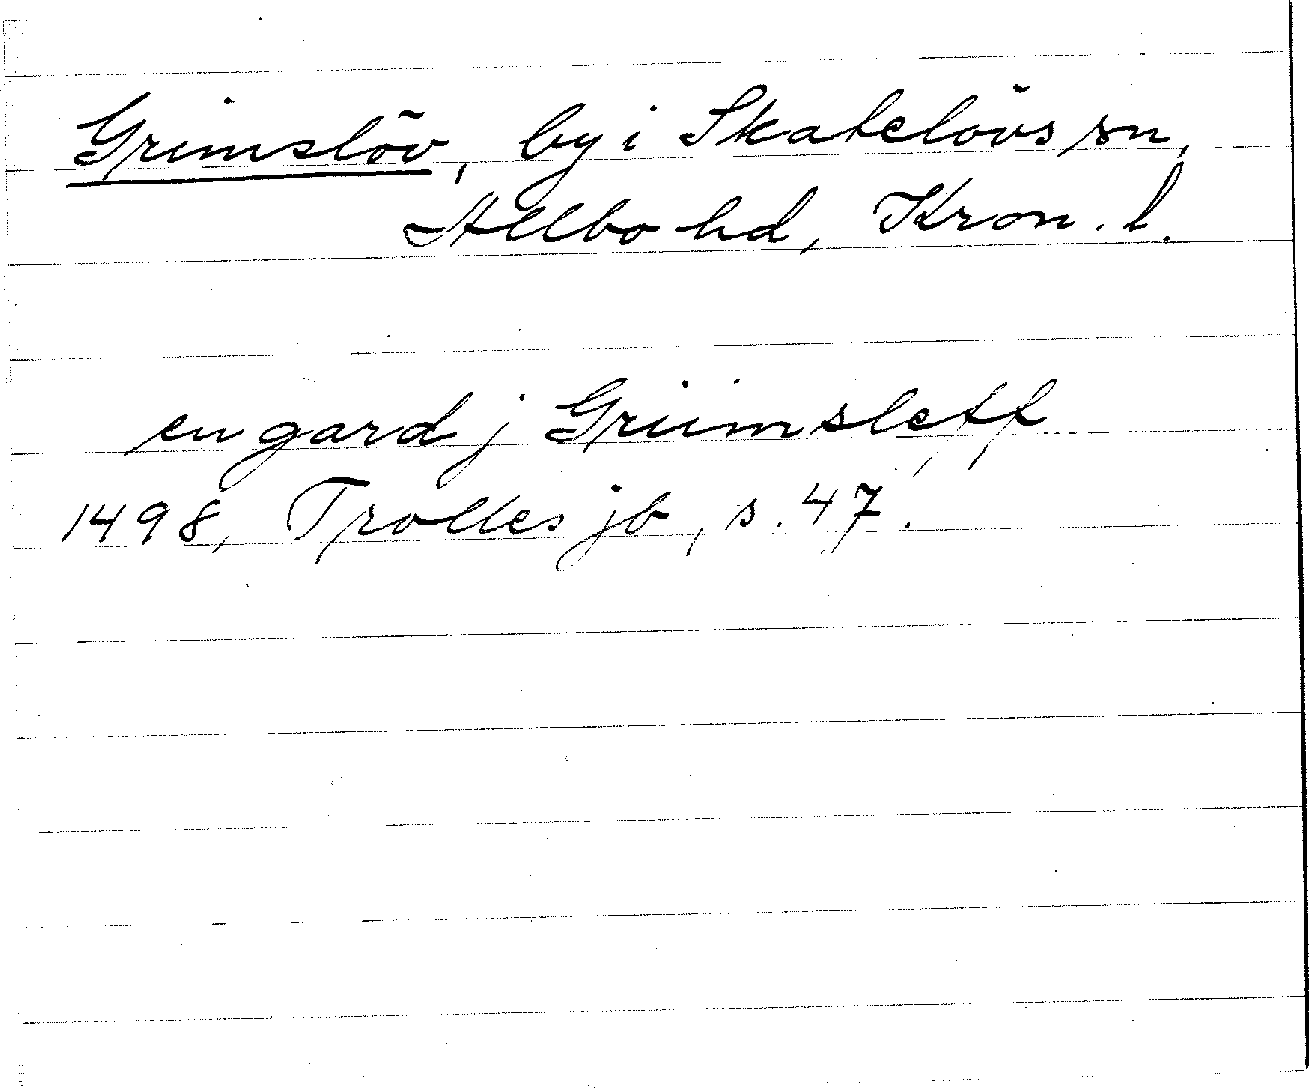 Grimslöv, by i Skatelövs sn,
Allbo hd, Kron. l.
en gard j Griimsleff
1498, Trolles jb, s. 47.